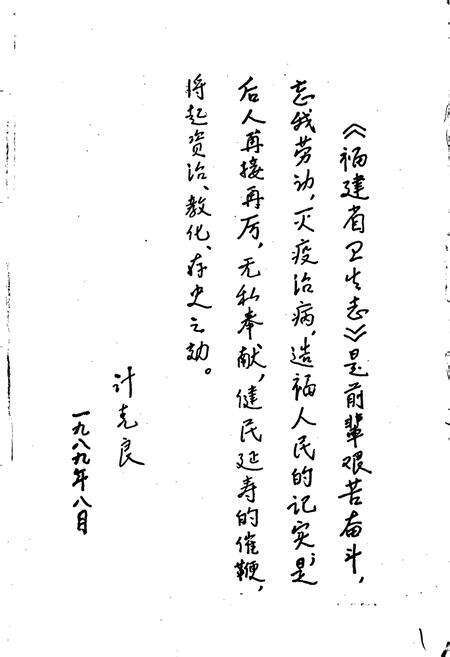 《福建省卫生志》是前辈艰苦奋斗，
忘我劳动，灭疫治病，造福人民的记实；是
后人再接再厉，无私奉献，健民延寿的催鞭，
将起资治、教化、存史之效。
计克良
一九八九年八月
1